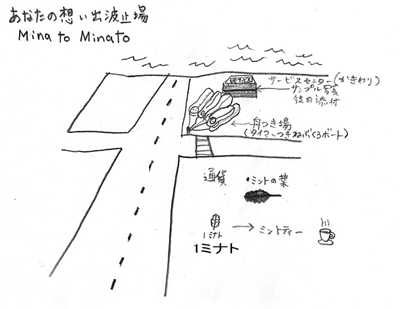 あなたの想い出波止場
Mina to Minato
サービスセンター(かきわり)
サンプル写真
後日添付
月つき場
(タイマーつきねぶくろボート)
通貨
・ミントの葉
1ミナト
→ ミントティー
1ミナト